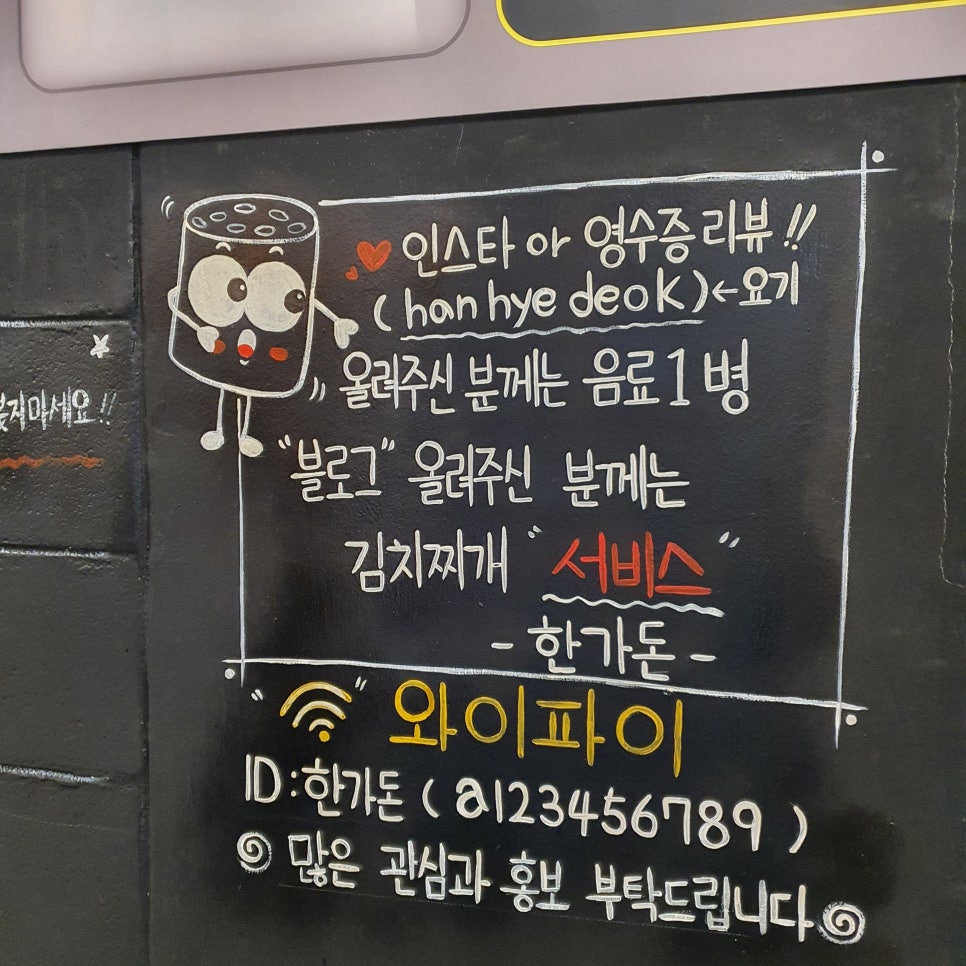 ♥ 인스타 아 영수증 리뷰!!
(hanhyedeok)←요기
올려주신 분께는 음료 1병
"블로그" 올려주신 분께는
김치찌개 "서비스"
- 한가돈 -
와이파이
ID:한가돈 (a123456789)
많은 관심과 홍보 부탁드립니다
지마세요!!